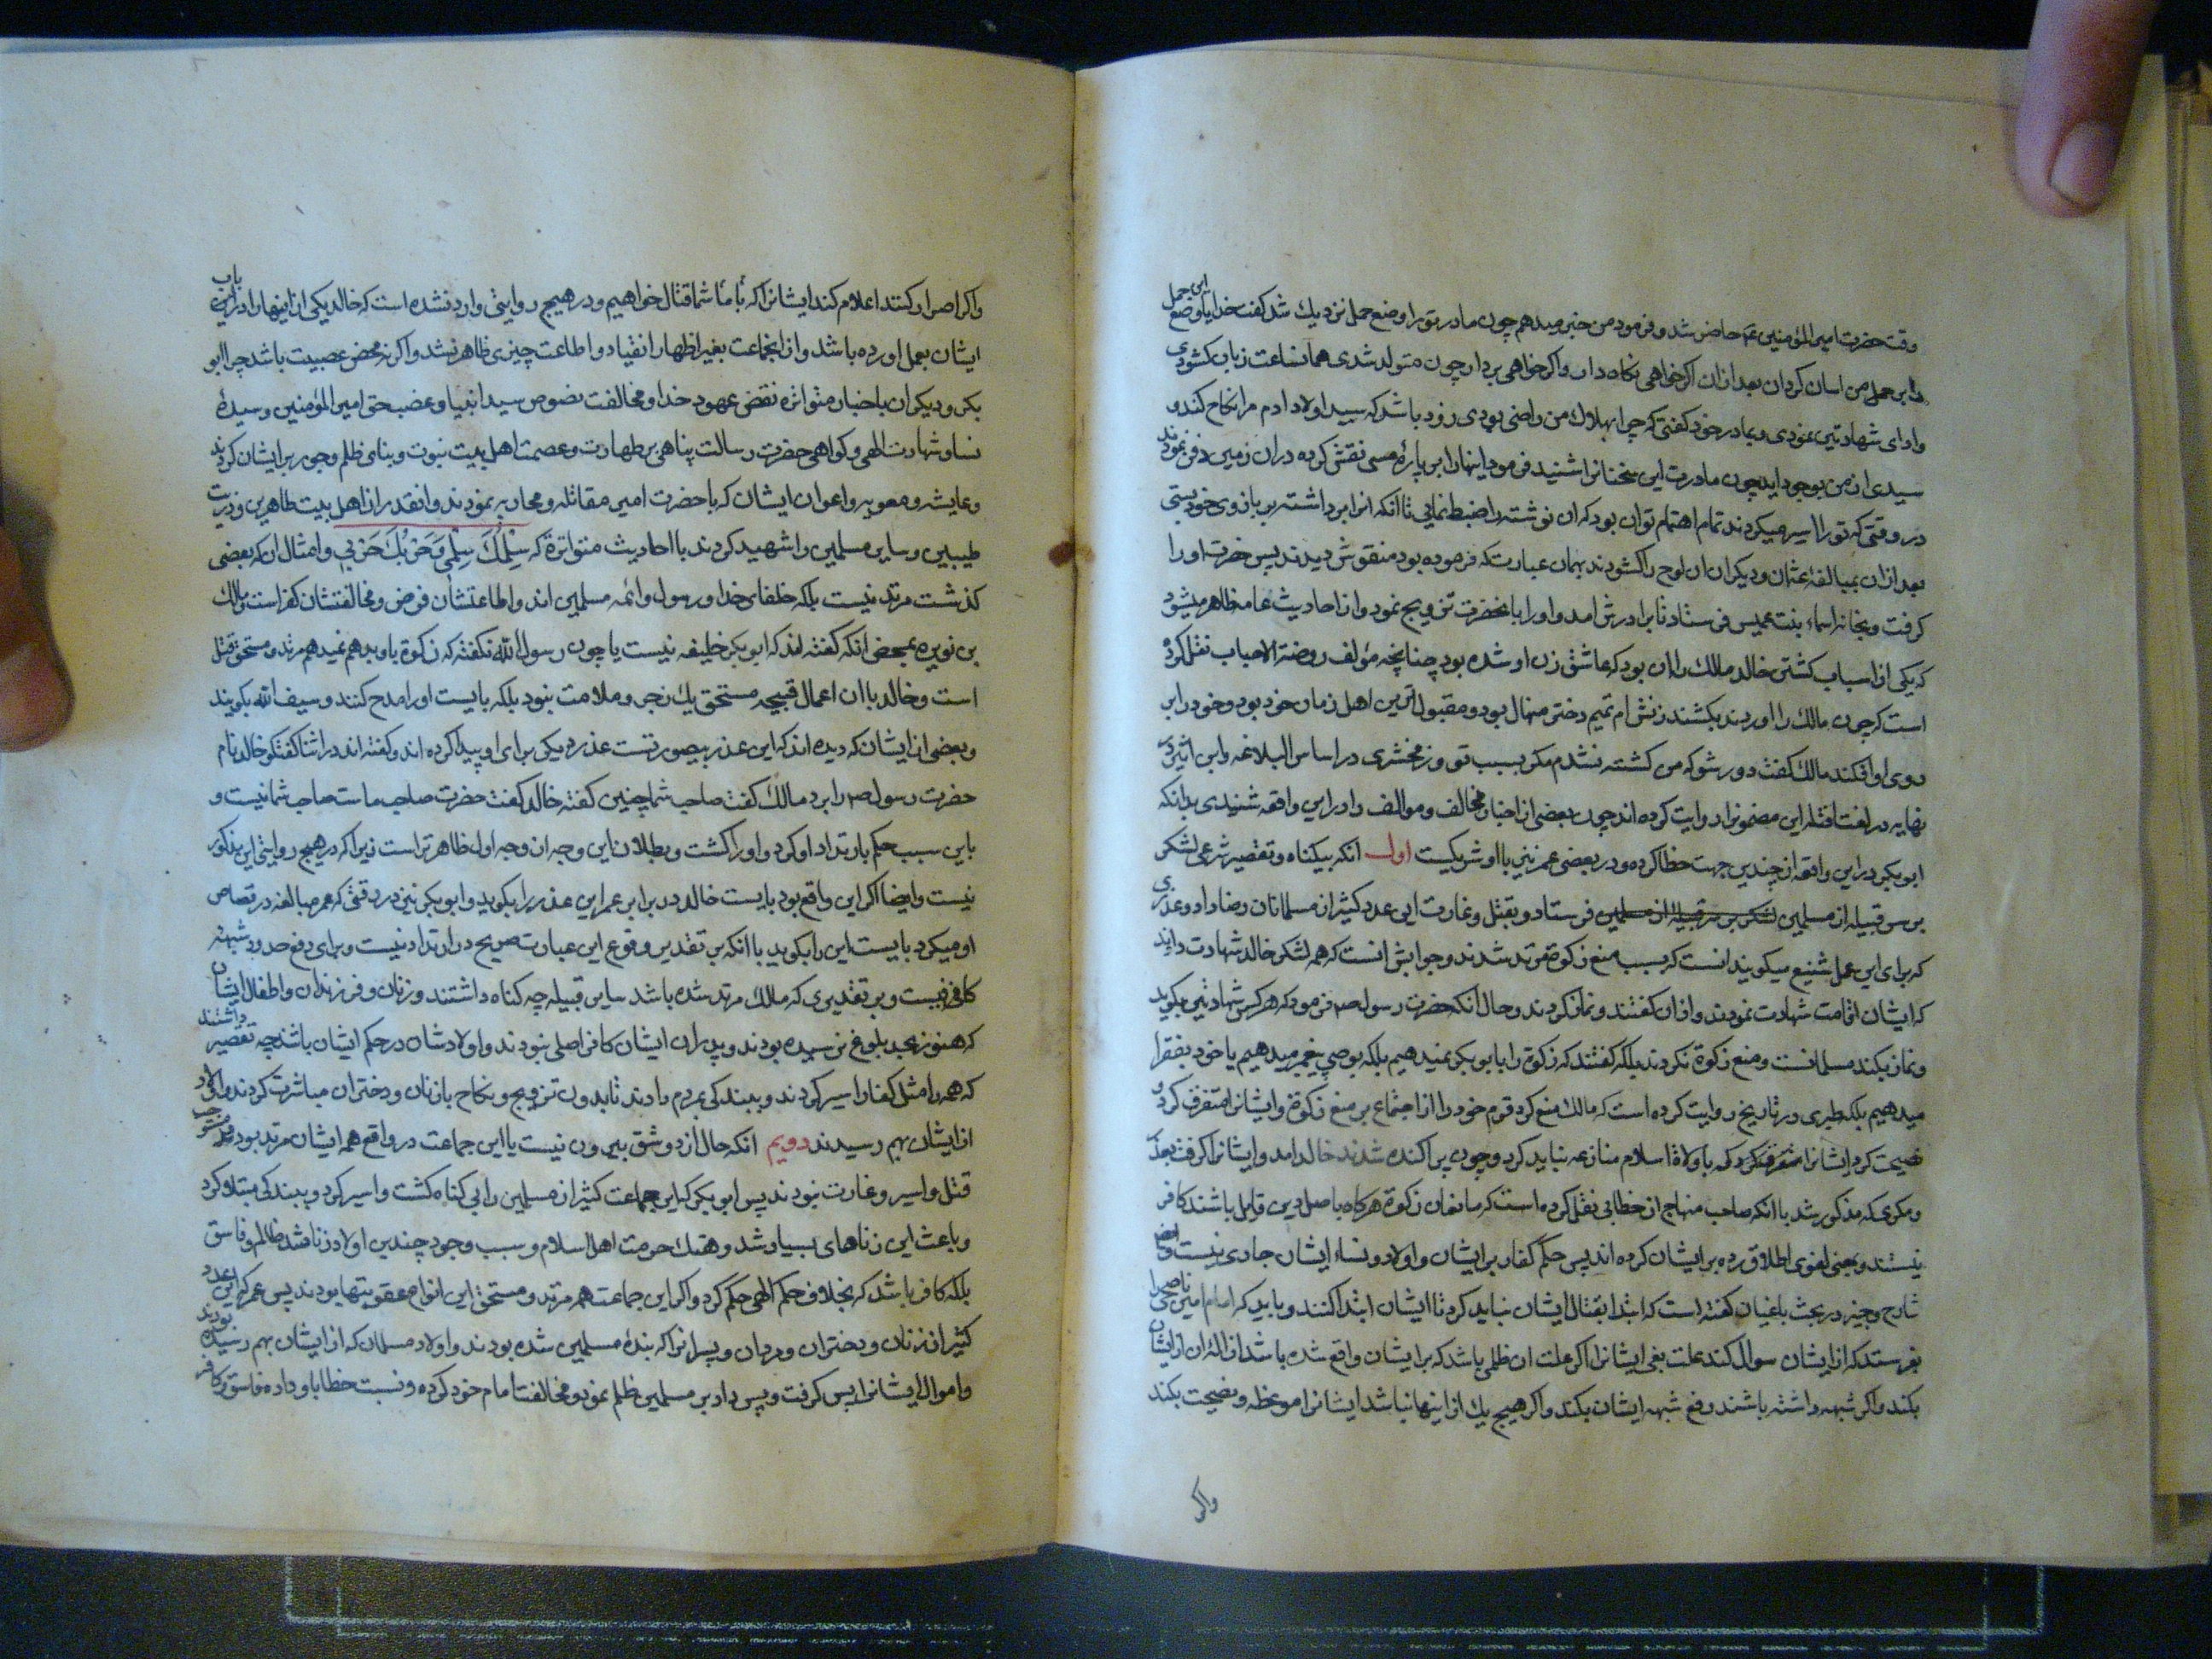 وقت حضرت امیر المؤمنین عم حاضر شد و فرمود من خبر میدهم چون مادر تو را وضع حمل نزدیك شد کفت خدایا وضع این حمل
را بر من اسان کردان بعد ازان اکر خواهی نکاه دار و اکر خواهی بردار چون متولد شدی همانساعت زبان کشودی
و ادای شهادتین نمودی و بمادر خود کفتی که چرا بهلاك من راضی بودی زود باشد که سید اولاد ادم مرا نکاح کند و
سیدی از من بوجود اید چون مادرت این سخنانرا شنید فرمود اینها را بر پارۀ مسی نقش کرده دران زمین دفن نمودند
در وقتی که تو را اسیر میکردند تمام اهتمام تو ان بود که ان نوشته را ضبط نمایی تا انکه انرا برداشته بر بازوی خود بستی
بعد ازان بمبالغۀ عثمان و دیکران ان لوح را کشودند بهمان عبارت که فرموده بود منقوش دیدند پس حضرت او را
کرفت و بخانه اسماء بنت عمیس فرستاد تا برادرش امد و او را بانحضرت تزویج نمود و از احادیث عامه ظاهر میشود
که یکی از اسباب کشتن خالد مالك را ان بود که عاشق زن او شده بود چنانچه مؤلف روضة الاحباب نقل کرده
است که چون مالك را اوردند بکشند زنش ام تمیم دختر منهال بود و مقبول ترین اهل زمان خود بود و خود را بر
روی او افکند مالك کفت دور شو که من کشته نشدم مکر بسبب تو و زمخشری در اساس البلاغه و ابن اثیر در
نهایه در لغت اقتله این مضمونرا روایت کرده اند چون بعضی از اخبار مخالف و موالف را در این واقعه شنیدی بدانکه
ابو بکر در این واقعه از چندین جهت خطا کرده و در بعضی عمر نیز با او شریکست اول انکه بیکناه و تقصیر شرعی لشکر
بر سر قبیله از مسلمین فرستاد و بقتل و غارت این عدد کثیر از مسلمانان رضا داد و عذری
که برای این عمل شنیع میکویند انست که بسبب منع زکوة مرتد شدند و جوابش انست که همه لشکر خالد شهادت دادند
که ایشان اقامت شهادت نمودند و اذان کفتند و نماز کردند و حال انکه حضرت رسول ص فرمود که هر کس شهادتین بکوید
و نماز بکند مسلمانست و منع زکوة نکردند بلکه کفتند که زکوة را بابو بکر نمیدهیم بلکه بوصی پیغمبر میدهیم یا خود بفقرا
میدهیم بلکه طبری در تاریخ روایت کرده است که مالك منع کرد قوم خود را از اجتماع بر منع زکوة و ایشانرا متفرق کرد و
نصیحت کرد ایشانرا که با ولاة اسلام منازعه نباید کرد و چون پراکنده شدند خالد امد و ایشانرا کرفت بعذر
و مکری که مذکور شد با انکه صاحب منهاج از خطابی نقل کرده است که مانعان زکوة هرکاه باصل دین قایل باشند کافر
نیستند و بمعنی لغوی اطلاق رده بر ایشان کرده اند پس حکم کفار بر ایشان و اولاد و نساء ایشان جاری نیست و ایضا
شارح وجیز در بحث باغیان کفته است که ابتدا بقتال ایشان نباید کرد تا ایشان ابتدا کنند و باید که امام امین ناصحی را
بفرستد که از ایشان سوال کند علت بغی ایشانرا اکر علت ان ظلمی باشد که بر ایشان واقع شده باشد ازالۀ ان از ایشان
بکند و اکر شبهه داشته باشند رفع شبهه ایشان بکند و اکر هیچ یك از اینها نباشد ایشانرا موعظه و نصیحت بکند
و اکر
و اکر اصرار کنند اعلام کند ایشانرا که با شما قتال خواهیم و در هیچ روایتی وارد نشده است که خالد یکی از اینها را در این باب
ایشان بعمل اورده باشد و از انجماعت بغیر اظهار انقیاد و اطاعت چیزی ظاهر نشد و اکر نه محض عصبیت باشد چرا ابو
بکر و دیکران باخبار متواتره نقض عهود خدا و مخالفت نصوص سید انبیا و غصب حق امیر المؤمنین و سیدۀ
نسا و شهادت الهی و کواهی حضرت رسالت پناهی بر طهارت و عصمت اهل بیت نبوت و بنای ظلم و جور بر ایشان کردند
و عایشه و معویه و اعوان ایشان که با حضرت امیر مقاتله و محاربه نمودند و انقدر از اهل بیت طاهرین و ذریت
طیبین و سایر مسلمین را شهید کردند با احادیث متواترة که سِلْمُكَ سِلْمِي وَحَرْبُكَ حَرْبِي و امثال ان که بعضی
کذشت مرتد نیست بلکه خلفای خدا و رسول و ائمه مسلمین اند و اطاعتشان فرض و مخالفتشان کفر است و مالك
بن نویره بمحض انکه کفته اند که ابو بکر خلیفه نیست یا چون رسول الله نکفته که زکوة باو بدهم نمیدهم مرتد و مستحق قتل
است و خالد با ان اعمال قبیحه مستحق یك زجر و ملامت نبود بلکه بایست او را مدح کنند و سیف الله بکویند
و بعضی از ایشان که دیده اند که این عذر بیصورتست عذر دیکر برای او پیدا کرده اند و کفته اند در اثنا کفتکو خالد نام
حضرت رسول ص را برد مالك کفت صاحب شما چنین کفته خالد کفت حضرت صاحب ماست صاحب شما نیست و
باین سبب حکم بارتداد او کرد و او را کشت و بطلان این وجه از وجه اول ظاهرتر است زیرا که در هیچ روایتی این مذکور
نیست و ایضا اکر این واقع بود بایست خالد در برابر عمر این عذر را بکوید و ابو بکر نیز در وقتی که عمر مبالغه در قصاص
او میکرد بایست این را بکوید با انکه بر تقدیر وقوع این عبارت صریح در ارتداد نیست و برای دفع حدود شبهه
کافی نیست و بر تقدیری که مالك مرتد شده باشد سایر قبیله چه کناه داشتند و زنان و فرزندان و اطفال ایشان
که هنوز بحد بلوغ نرسیده بودند و پدران ایشان کافر اصلی نبودند و اولادشان در حکم ایشان باشند چه تقصیر داشتند
که همه را مثل کفار اسیر کردند و ببندکی بمردم دادند تا بدون تزویج و نکاح با زنان و دختران مباشرت کردند و اولاد
از ایشان بهم رسیدند دویم انکه حال از دو شق بیرون نیست یا این جماعت در واقع همه ایشان مرتد بودند و مستوجب
قتل و اسیر و غارت نبودند پس ابو بکر که این جماعت کثیر از مسلمین را بی کناه کشت و اسیر کرد و ببندکی مبتلا کرد
و باعث این زناهای بسیار شد و هتك حرمت اهل اسلام و سبب وجود چندین اولاد زنا شد ظالم و فاسق
بلکه کافر باشد که بخلاف حکم الهی حکم کرد و اکر این جماعت همه مرتد و مستحق این انواع عقوبتها بودند پس عمر که این عدد
کثیر از زنان و دختران و مردان و پسرانرا که بندۀ مسلمین شده بودند و اولاد مسلمان که از ایشان بهم رسیده بودند
و اموال ایشانرا پس کرفت و پس داد بر مسلمین ظلم نمود و مخالفت امام خود کرده و نسبت خطا باو داده فاسق و کافر